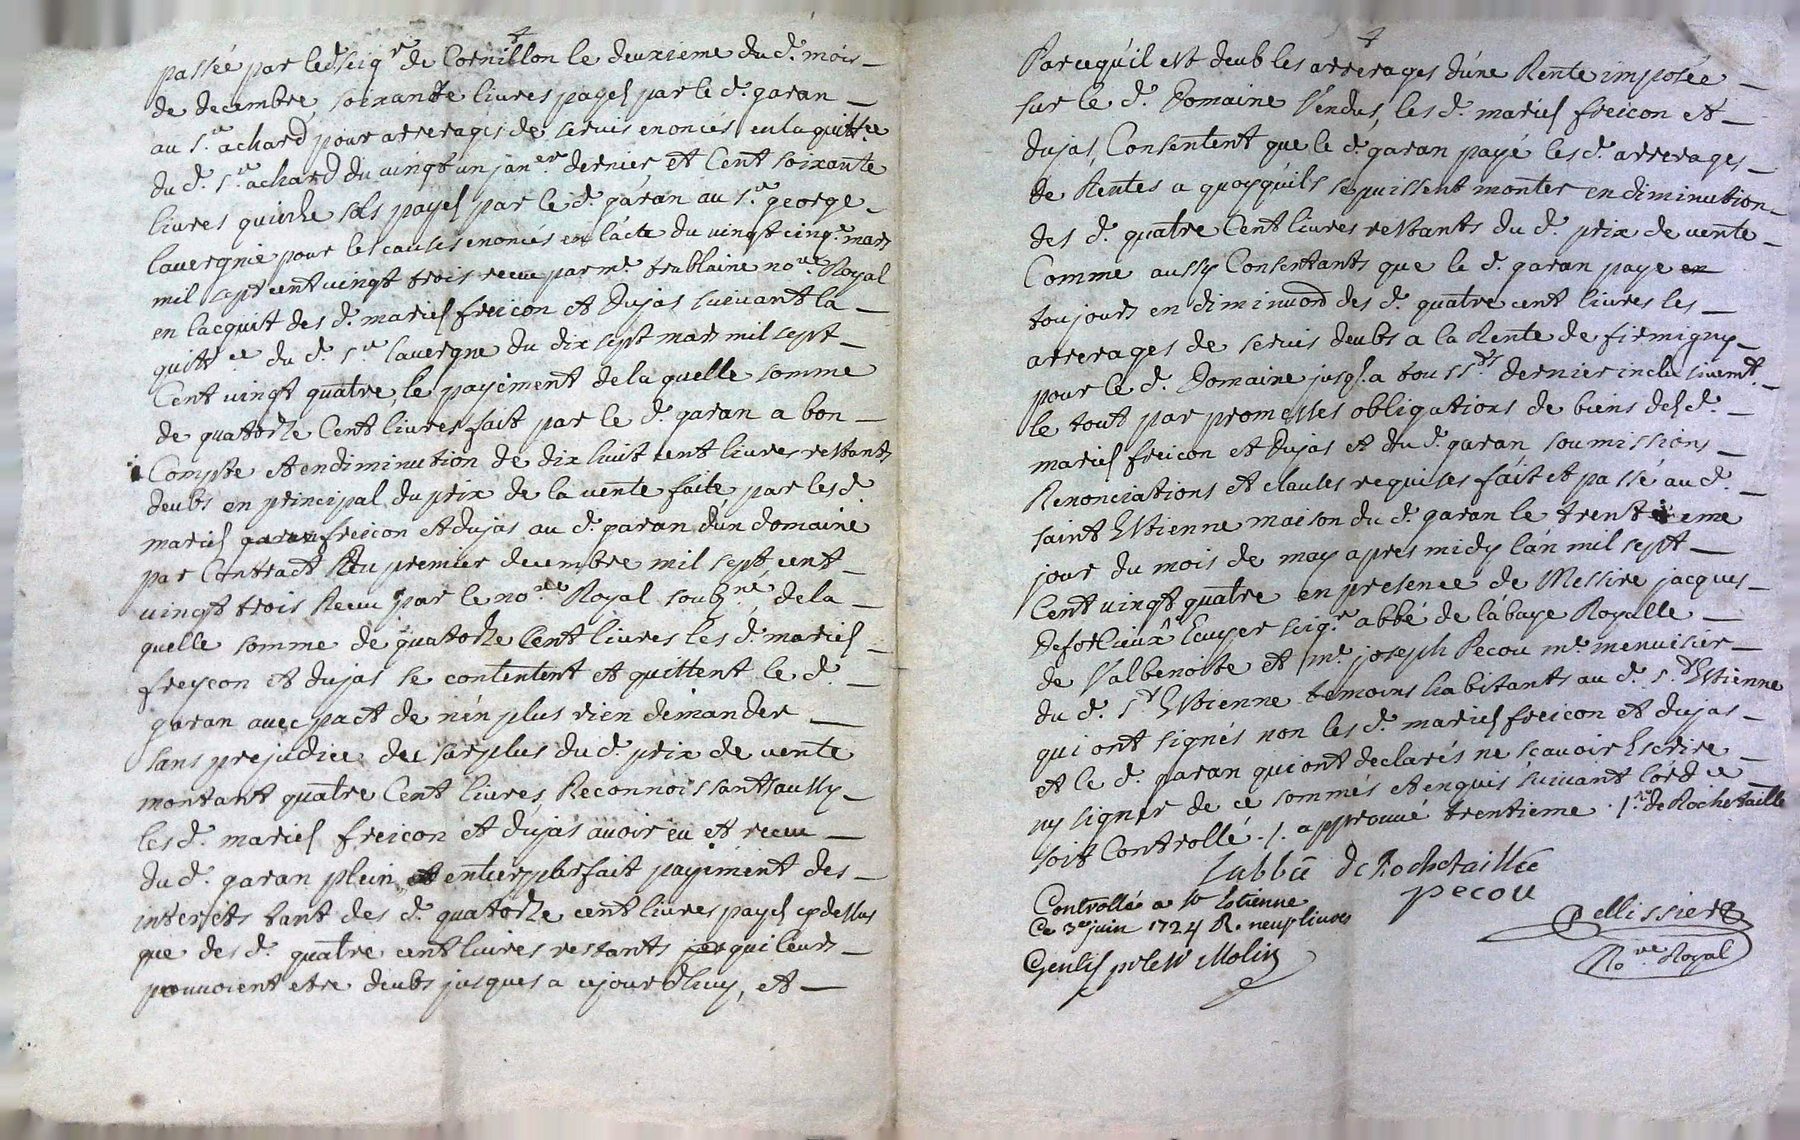 passée par led. seigr de Cornillon le deuxieme du d. mois
de decembre, soixante livres payes par le d. garan
au sr. achard pour arrerages de servis enoncés en la quittce
du d. sr. achard du vingt un janer dernier, et Cent soixante
livres quinze sols payes par le d. garan au sr. george
lavergnie pour les causes enoncés en lácte du vingt cinqe. mars
mil sept cent vingt trois receu par me. trablaine nore. Royal
en lacquit des d. maries freicon et dujas suivant la
quittce du d. sr lavergne du dix sept mars mil sept
Cent vingt quatre, le payement de la quelle somme
de quatorze Cent livres fait par le d. garan a bon
Compte et en diminution de dix huit cent livres restants
deubs en principal du prix de la vente faite par les d.
maries garan freicon et dujas au d. garan d'un domaine
par Contract du premier decembre mil sept cent
vingt trois Receu par le nore Royal soubzné, de la
quelle somme de quatorze Cent livres les d. maries
freycon et dujas se contentent et quittent le d.
garan avec pact de n'en plus rien demander
sans prejudice du surplus du d. prix de vente
montant quatre Cent livres, Reconnoissants aussy
les d. maries freicon et dujas avoir eu et receu
du d. garan plein et entier parfait payement des
interets tant des d. quatorze cent livres payes cy dessus
que des d. quatre cent livres restants qui leurs
pouvoient etre deubs jusques a cejourdhuy, et
Parcequ'il est deub les arrerages d'une Rente imposée
sur le d. Domaine Vendus, les d. maries freicon et
dujas Consentent que le d. garan payé les d. arrerages
de Rentes a quoyqu'ils se puissent monter en diminution
des d. quatre Cent livres restants du d. prix de vente
Comme aussy Consentants que le d. garan paye en
toujours en diminuon des d. quatre cent livres les
arrerages de servis deubs a la Rente de firmigny
pour le d. Domaine jusqs. a toussts dernier inclusivemt.
le tout par promesses obligations de biens des d.
maries freicon et dujas et du d. garan soumissions
Renonciations et clauses requises fait et passé au d.
saint Estienne maison du d. garan le trentieme
jour du mois de may apres midy lán mil sept
Cent vingt quatre en presence de Messire jacques
Deforlieux Ecuyer seigr abbé de lábaye Royalle
de Valbenoite et me. joseph Pecou me menuisier
du d. St Estienne temoins habitants au d. St Estienne
qui ont signés non les d. maries freicon et dujas
et le d. garan qui ont declarés ne scavoir Escrire
ny signer de ce sommés et enquis suivant l'ordce
soit Controllé ./. approuvé trentieme ./. de Rochetaillé
Labbé de Rochetaillée
pecou
Pellissier
Nore Royal
Controllé a St Etienne
Ce 3e juin 1724 R. neuf livres
Molin